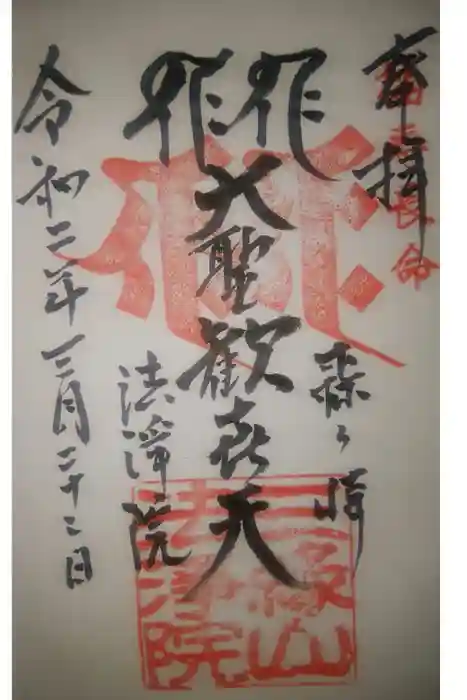 奉拝
長命
森ヶ崎
大聖歓喜天
法浄院
令和二年三月二十二日
三縁山
法浄院